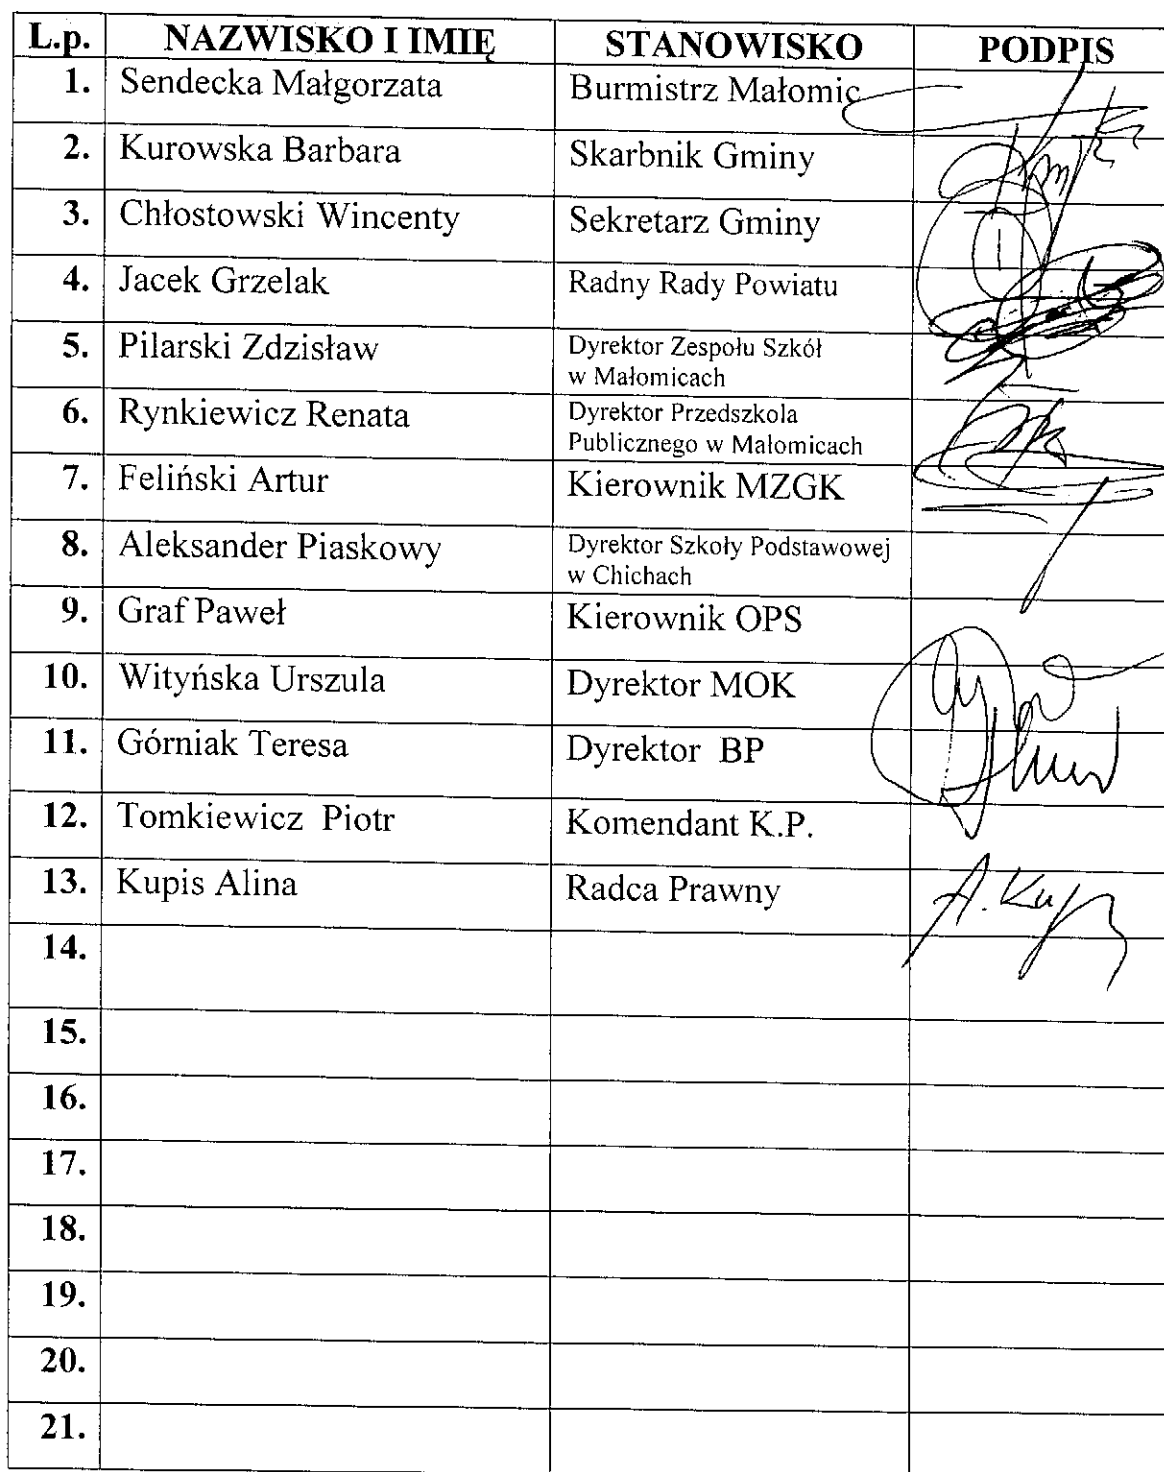 L.p. NAZWISKO I IMIĘ STANOWISKO PODPIS
1. Sendecka Małgorzata Burmistrz Małomic
2. Kurowska Barbara Skarbnik Gminy
3. Chłostowski Wincenty Sekretarz Gminy
4. Jacek Grzelak Radny Rady Powiatu
5. Pilarski Zdzisław Dyrektor Zespołu Szkół
w Małomicach
6. Rynkiewicz Renata Dyrektor Przedszkola
Publicznego w Małomicach
7. Feliński Artur Kierownik MZGK
8. Aleksander Piaskowy Dyrektor Szkoły Podstawowej
w Chichach
9. Graf Paweł Kierownik OPS
10. Wityńska Urszula Dyrektor MOK
11. Górniak Teresa Dyrektor BP
12. Tomkiewicz Piotr Komendant K.P.
13. Kupis Alina Radca Prawny A.
14.
15.
16.
17.
18.
19.
20.
21.